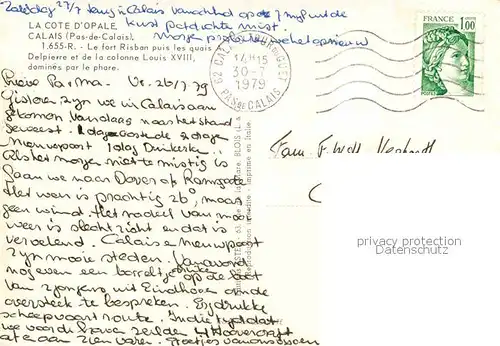 Zaterdag 27/7 terug in Calais vanochtend op 7 mijl uit de
kust potdichte mist
Morgen proberen we het opnieuw
LA COTE D'OPALE
CALAIS (Pas-de-Calais).
1.655-R. - Le fort Risban puis les quais
Delpierre et de la colonne Louis XVIII,
dominés par le phare.
62 CALAIS
PAS DE CALAIS
14H15
30-7
1979
FRANCE
1,00
Lieve Pa + Ma. Vr. 26/7 79
Gisteren zijn we in Calais aan
gekomen vandaag naar het strand
geweest. 1 dag oostende 2 dagen
Nieuwpoort 1 dag Duinkerke.
Als het morgen niet te mistig is
gaan we naar Dover of Ramsgate
Het weer is prachtig 26°, maar
geen wind. Het nadeel van mooi
weer is slecht zicht en dat is
vervelend. Calais en nieuwpoort
zijn mooie steden. Vanavond
nog even een borreltje drinken op de boot
van 2 jongens uit Eindhoven om de
oversteek te bespreken. Erg drukke
scheepvaart route. In die tijd dat
we voor de haven zeilden 4 Hoovercraft
af en aan zien varen. Groetjes van ons
Fam. F. Wolt
BLOIS
Reproduction interdite - Imprimé en Italie
privacy protection
Datenschutz